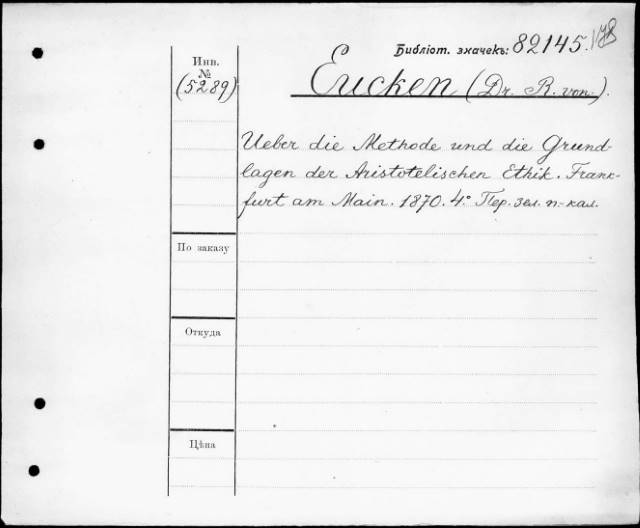 Библіот. значекъ: 82145.
Инв.
№
(5289)
Eucken (Dr. R. von.).
Ueber die Methode und die Grund-
lagen der Aristotelischen Ethik. Frank-
furt am Main. 1870. 4° Пер. зел. п.-кал.
По заказу
Откуда
Цѣна